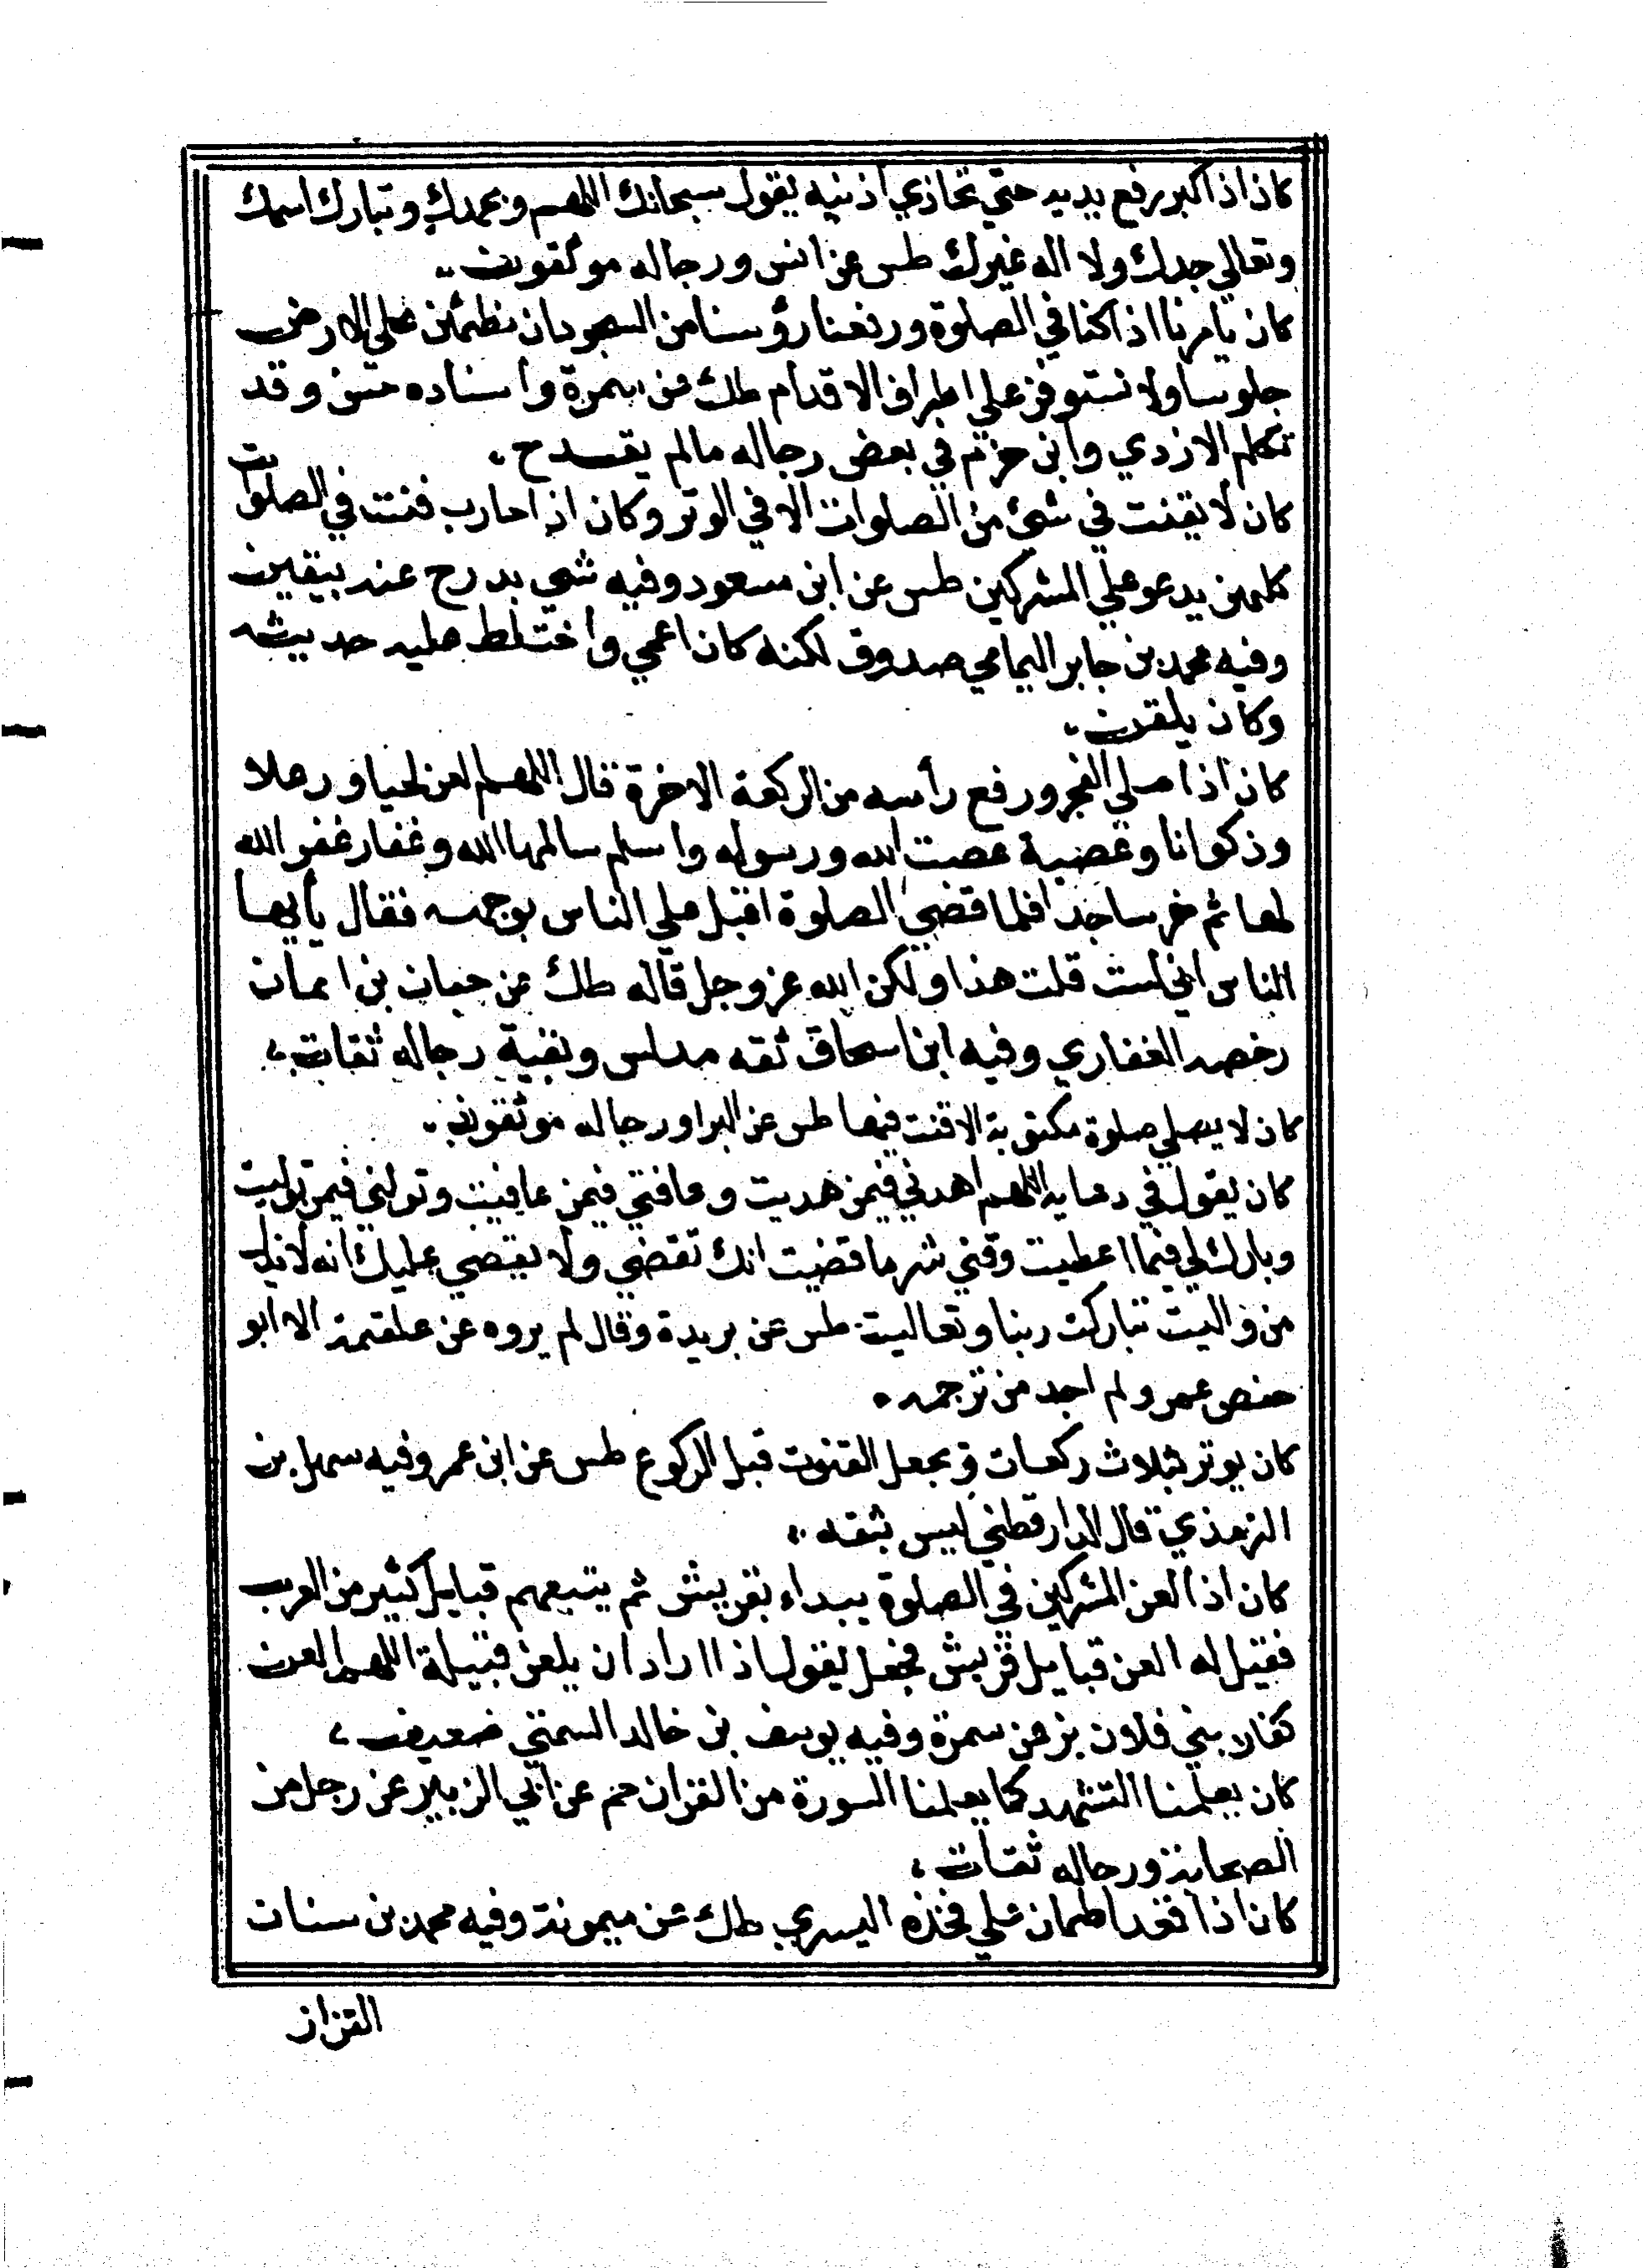 كان اذا كبر رفع يديه حتي تحاذي اذنيه يقول سبحانك اللهم وبحمدك وتبارك اسمك
وتعالي جدك ولا اله غيرك طس عن انس ورجاله موثقون
كان يامرنا اذا كنا في الصلوة ورفعنا رؤسنا من السجود ان نطمئن علي الارض
جلوسا ولا نستوفز علي اطراف الاقدام طك عن سمرة واسناده حسن وقد
تكلم الازدي وابن حزم في بعض رجاله مالم يقدح
كان لا يقنت في شئ من الصلوات الا في الوتر وكان اذا حارب قنت في الصلوات
كلهن يدعو علي المشركين طس عن ابن مسعود وفيه شي يدرج عند بيقين
وفيه محمد بن جابر اليمامي صدوق لكنه كان اعمي واختلط عليه حديثه
وكان يلقن
كان اذا صلي الفجر ورفع رأسه من الركعة الاخرة قال اللهم العن لحيا ورعلا
وذكوانا وعضية عصت الله ورسوله واسلم سالمها الله وغفار غفر الله
لها ثم خر ساجدا فلما قضي الصلوة اقبل علي الناس بوجهه فقال يأيها
الناس اني لست قلت هذا ولكن الله عز وجل قاله طك عن خفاف بن ايمان
رخصه الغفاري وفيه ابن اسحاق ثقه مدلس وبقية رجاله ثقات
كان لا يصلي صلوة مكتوبة الا قنت فيها طس عن البرا ورجاله موثقون
كان يقول في دعايه اللهم اهدني فيمن هديت وعافني فيمن عافيت وتولني فيمن توليت
وبارك لي فيما اعطيت وقني شر ما قضيت انك تقضي ولا يقضي عليك انه لا يذل
من واليت تباركت ربنا وتعاليت طس عن بريدة وقال لم يروه عن علقمة الا ابو
حفص عمر ولم اجد من ترجمه
كان يوتر بثلاث ركعات ويجعل القنوت قبل الركوع طس عن ابن عمر وفيه سهل بن
الترمذي قال الدارقطني ليس بثقه
كان اذا لعن المشركين في الصلوة يبداء بقريش ثم يتبعهم قبايل كثير من العرب
فقيل له العن قبايل قريش فجعل يقول اذا اراد ان يلعن قبيلة اللهم العن
كفار بني فلان بز عن سمرة وفيه يوسف بن خالد السمتي ضعيف
كان يعلمنا التشهد كما يعلمنا السورة من القران حم عن ابي الزبير عن رجل من
الصحابة ورجاله ثقات
كان اذا قعد اطمان علي فخذه اليسري طك عن ميمونة وفيه محمد بن سنان
القزاز